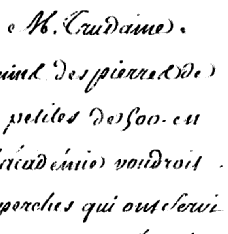 M. Trudaine.
des pierres de
petites de 500. en
académie voudroit
perches qui ont servi